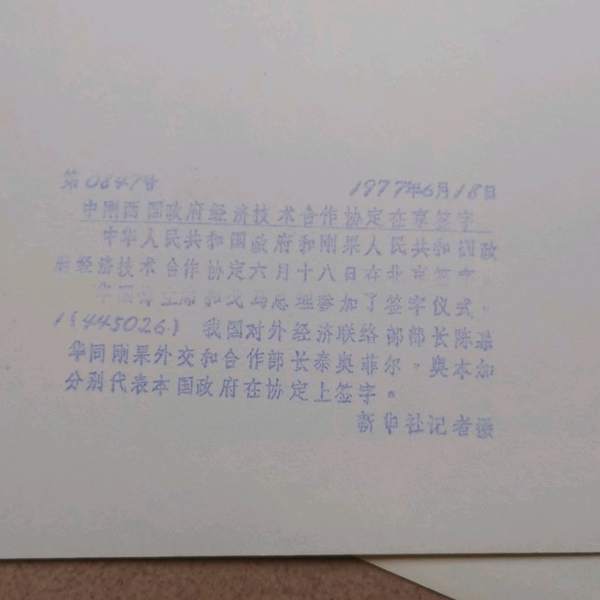 第0647号 1977年6月18日
中刚两国政府经济技术合作协定在京签字
中华人民共和国政府和刚果人民共和国政
府经济技术合作协定六月十八日在北京签字
华国锋主席和戈马总理参加了签字仪式。
1（445026） 我国对外经济联络部部长陈慕
华同刚果外交和合作部长泰奥菲尔·奥本加
分别代表本国政府在协定上签字。
新华社记者摄